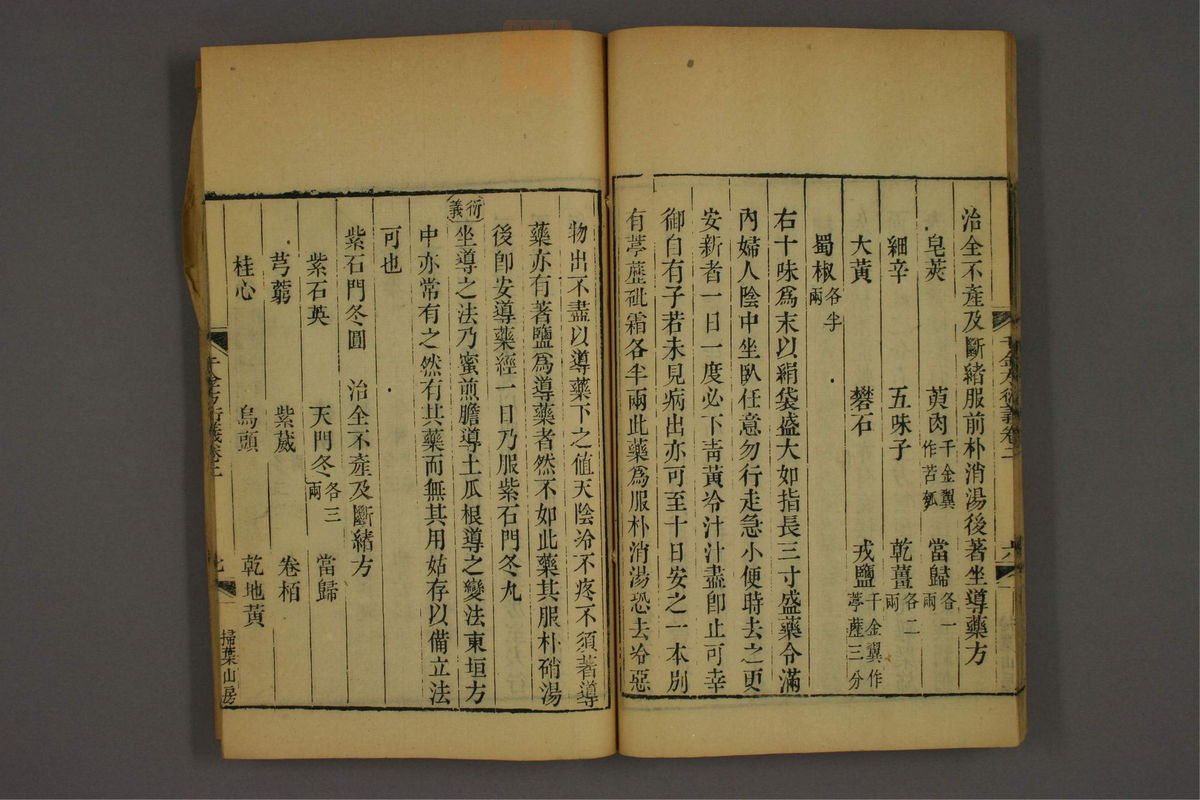 治全不產及斷緒服前朴消湯後著坐導藥方
皂莢 萸肉千金翼作苦瓠 當歸各一兩
細辛 五味子 乾薑各二兩
大黃 礬石 戎鹽千金翼作葶藶三分
蜀椒各半兩
右十味爲末以絹袋盛大如指長三寸盛藥令滿
內婦人陰中坐臥任意勿行走急小便時去之更
安新者一日一度必下靑黃冷汁汁盡卽止可幸
御自有子若未見病出亦可至十日安之一本別
有葶藶砒霜各半兩此藥爲服朴消湯恐去冷惡
千金方衍義卷二
六
物出不盡以導藥下之値天陰冷不疼不須著導
藥亦有著鹽爲導藥者然不如此藥其服朴硝湯
後卽安導藥經一日乃服紫石門冬丸
衍義
坐導之法乃蜜煎膽導土瓜根導之變法東垣方
中亦常有之然有其藥而無其用姑存以備立法
可也
紫石門冬圓 治全不產及斷緒方
紫石英 天門冬各三兩 當歸
芎藭 紫葳 卷栢
桂心 烏頭 乾地黃
千金方衍義卷二
七
掃葉山房